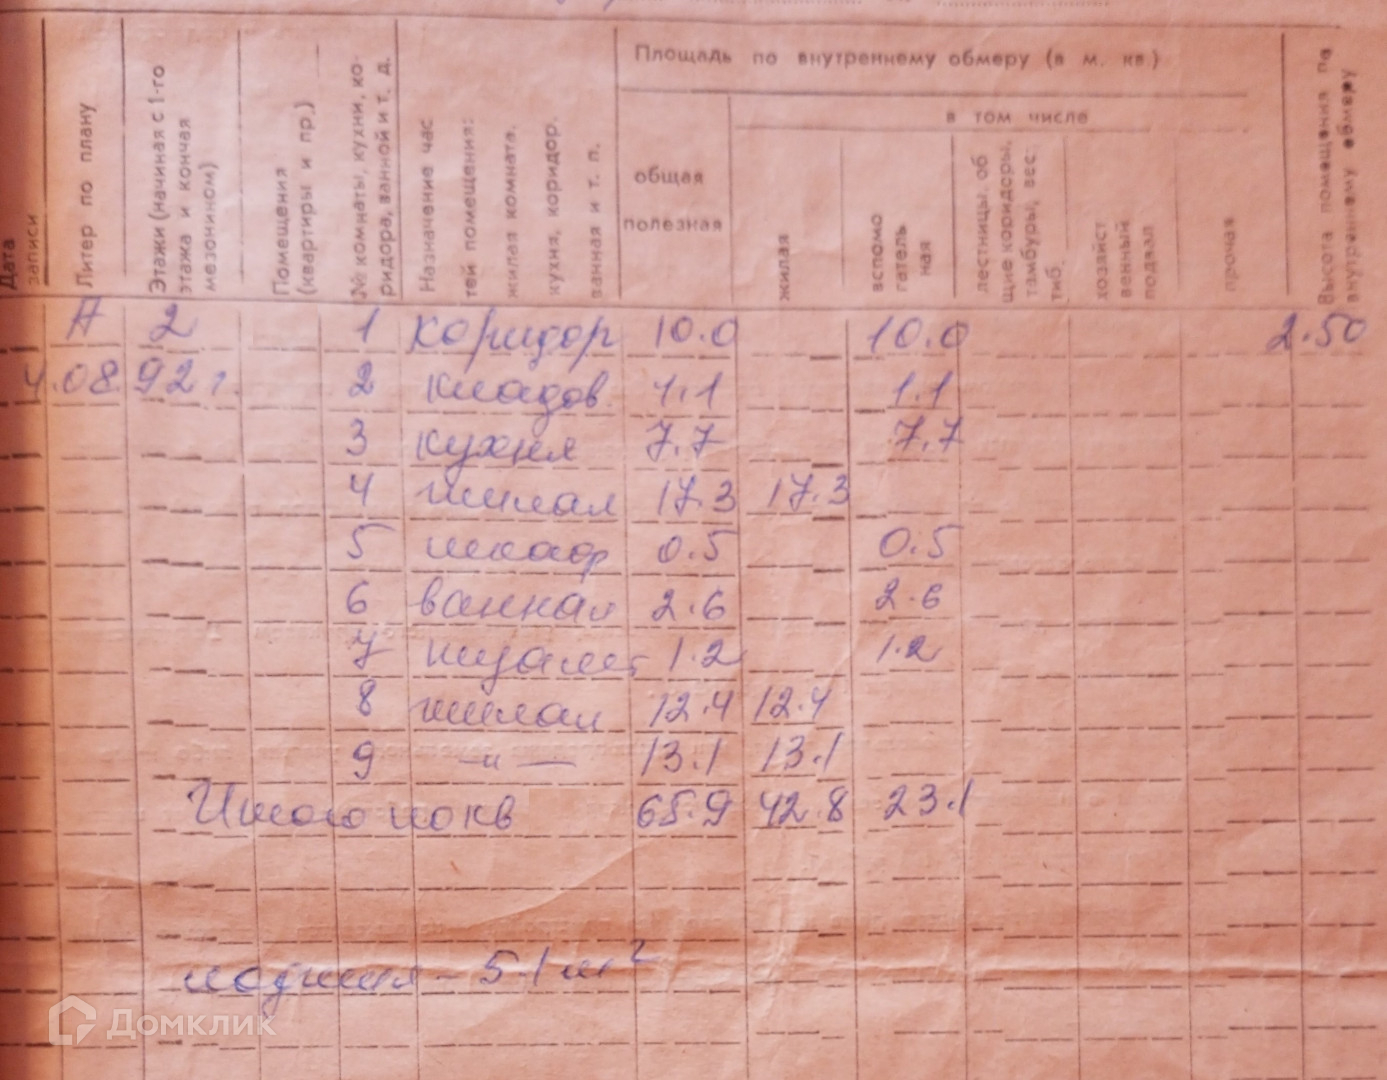 Площадь по внутреннему обмеру (в м. кв.)
в том числе
Дата записи
Литер по плану
Этажи (начиная с 1-го этажа и кончая мезонином)
Помещения (квартиры и пр.)
№ комнаты, кухни, коридора, ванной и т. д.
Назначение частей помещения: жилая комната, кухня, коридор, ванная и т. п.
общая полезная
жилая
вспомогательная
лестницы, общие коридоры, тамбуры, вестиб.
хозяйственный подвал
прочая
Высота помещения по внутреннему обмеру
А 2 1 коридор 10.0 10.0 2.50
4.08 92 г. 2 кладов. 1.1 1.1
3 кухня 7.7 7.7
4 жилая 17.3 17.3
5 шкаф 0.5 0.5
6 ванная 2.6 2.6
7 туалет 1.2 1.2
8 жилая 12.4 12.4
9 —"— 13.1 13.1
Итого по кв 65.9 42.8 23.1
лоджия - 5.1 м²
Домклик